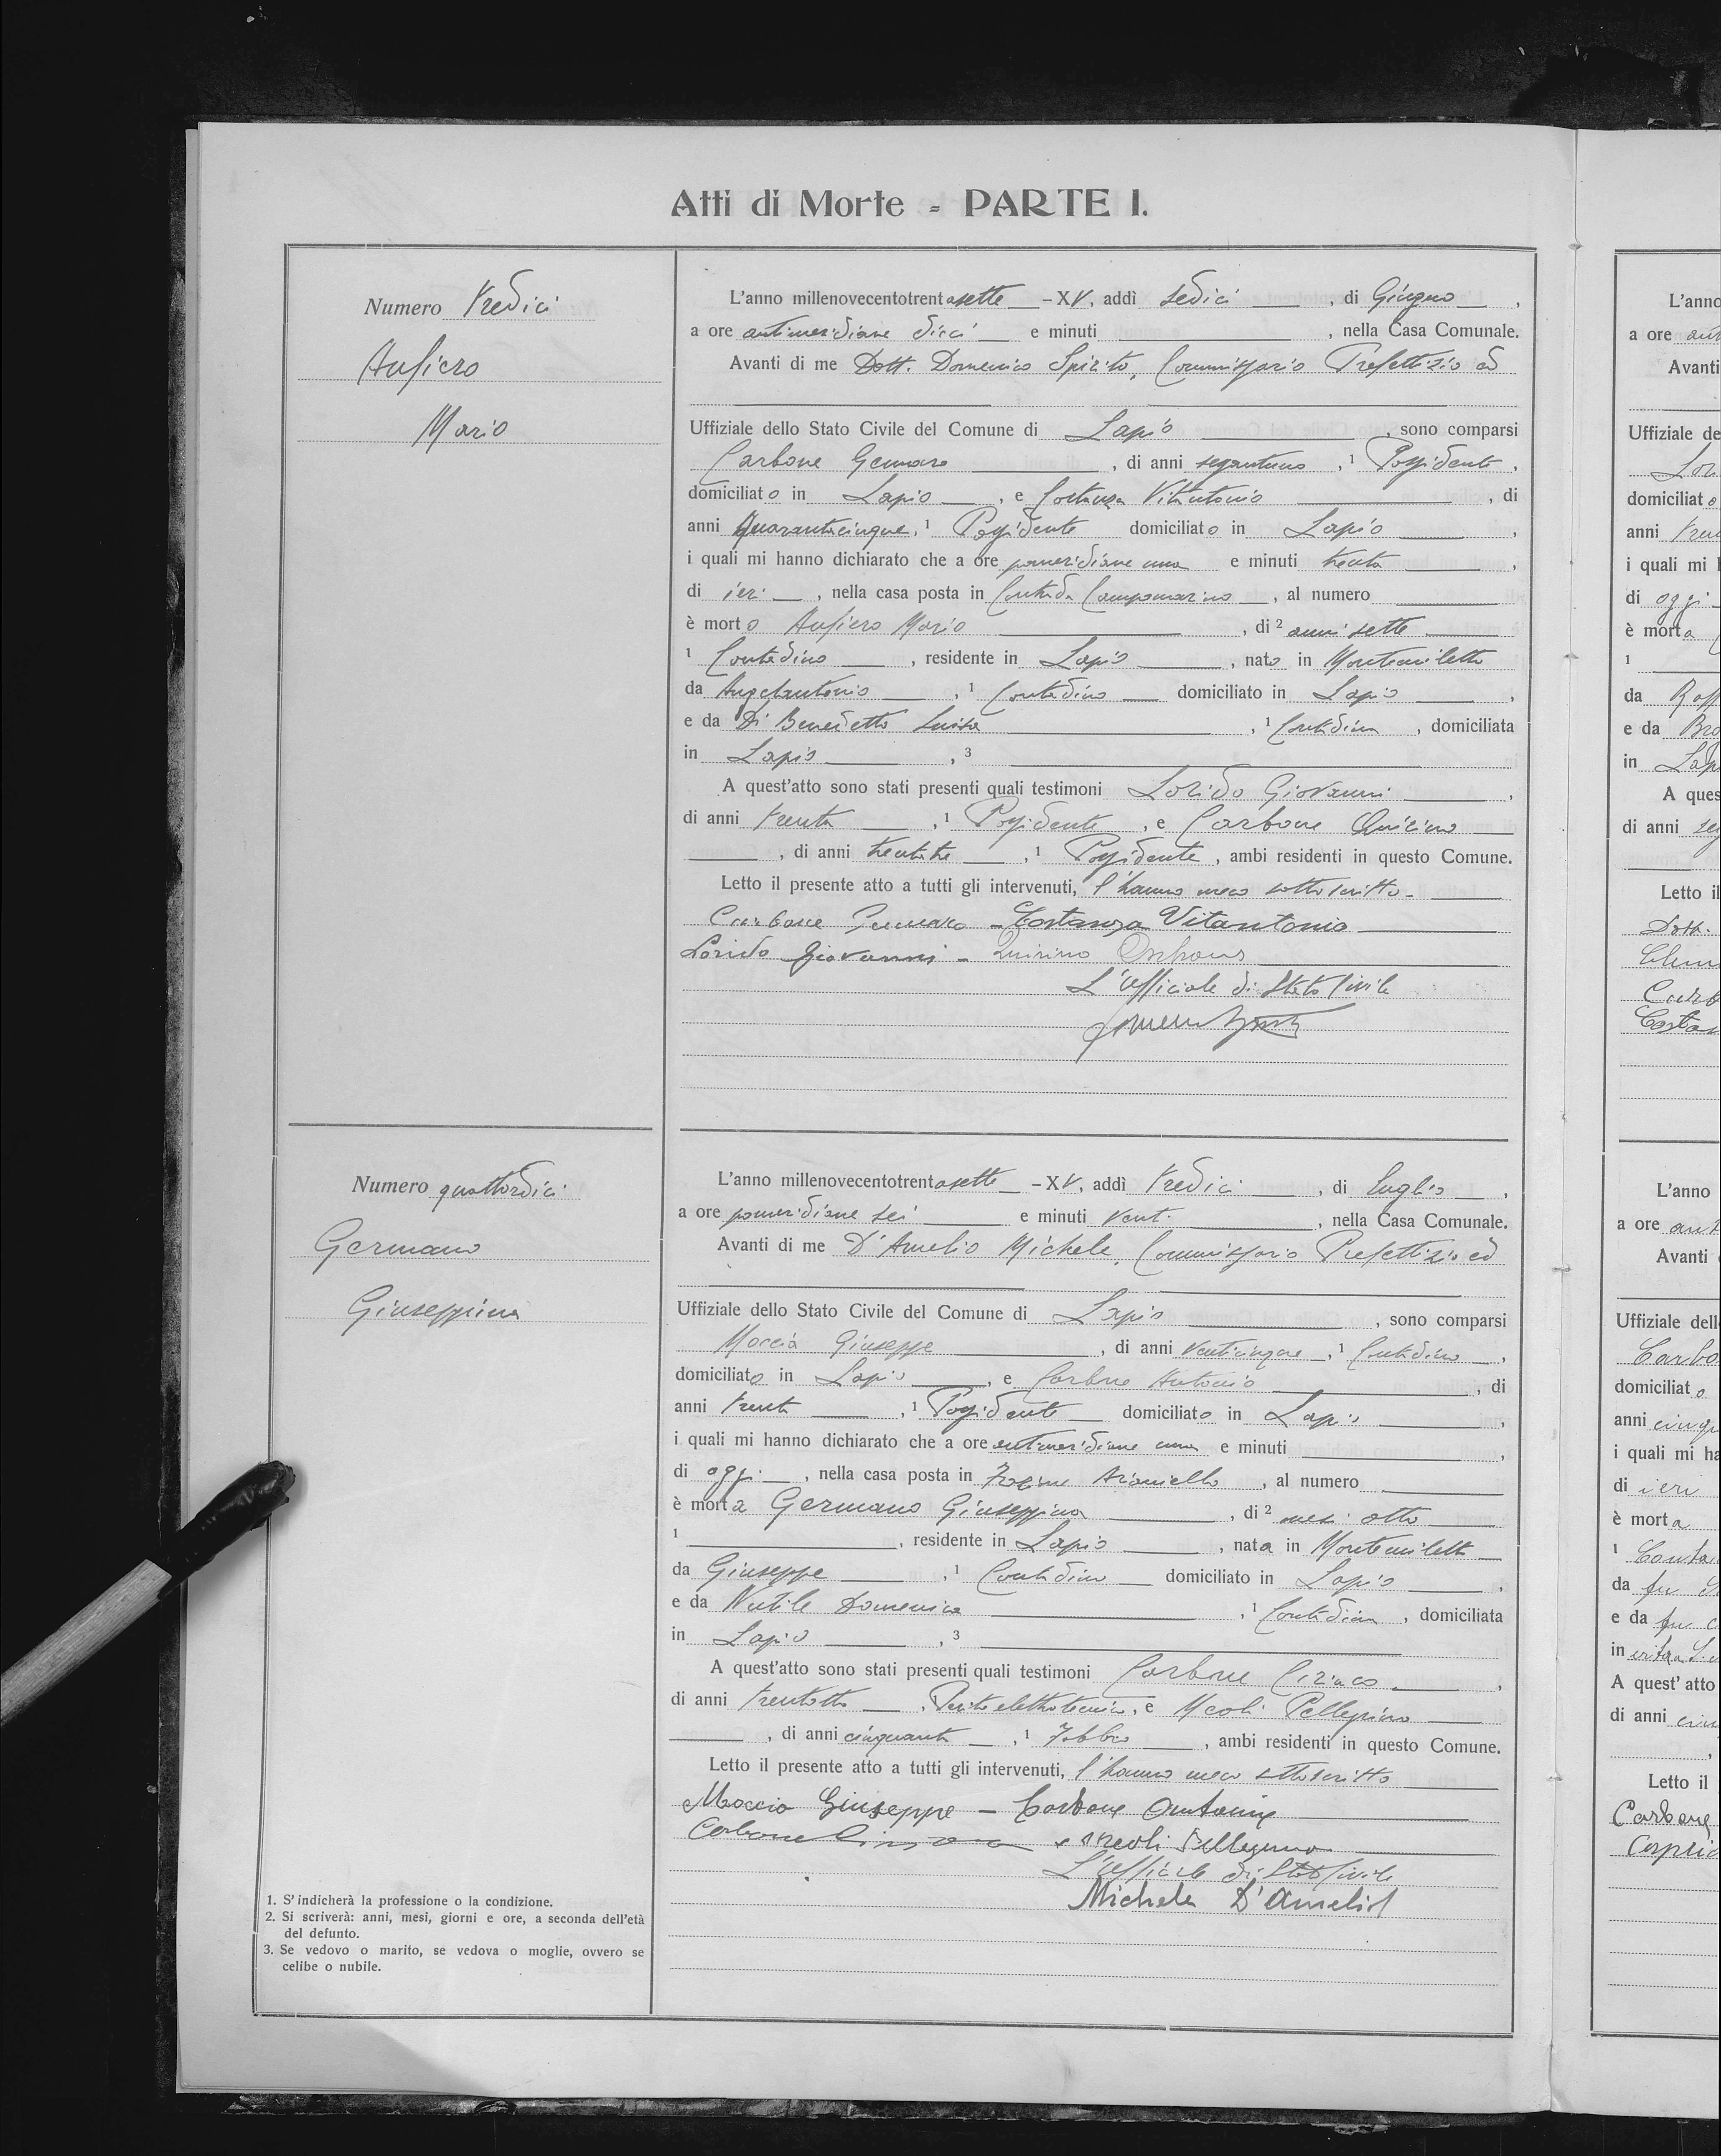 Atti di Morte - PARTE I.
Numero Tredici
Aufiero
Mario
L'anno millenovecentotrentasette - XV, addì sedici, di Giugno,
a ore antimeridiane dieci e minuti, nella Casa Comunale.
Avanti di me Dott. Domenico Spirito, Commissario Prefettizio ed
Uffiziale dello Stato Civile del Comune di Lapio, sono comparsi
Carbone Gennaro, di anni sessantuno, 1 Possidente,
domiciliato in Lapio, e Costanza Vitantonio, di
anni Quarantacinque, 1 Possidente domiciliato in Lapio,
i quali mi hanno dichiarato che a ore pomeridiane una e minuti trenta,
di ieri, nella casa posta in Contrada Campomarino, al numero
è morto Aufiero Mario, di 2 anni sette
1 Contadino, residente in Lapio, nato in Montemiletto
da Angelantonio, 1 Contadino domiciliato in Lapio,
e da Di Benedetto Luisa, 1 Contadina, domiciliata
in Lapio, 3
A quest'atto sono stati presenti quali testimoni Lorido Giovanni,
di anni trenta, 1 Possidente, e Carbone Quirino
, di anni trentatre, 1 Possidente, ambi residenti in questo Comune.
Letto il presente atto a tutti gli intervenuti, l'hanno meco sottoscritto -
Carbone Gennaro - Costanza Vitantonio
Lorido Giovanni - Quirino Carbone
L'ufficiale di Stato Civile
Numero quattordici
Germano
Giuseppina
L'anno millenovecentotrentasette - XV, addì Tredici, di luglio,
a ore pomeridiane sei e minuti venti, nella Casa Comunale.
Avanti di me D'Amelio Michele, Commissario Prefettizio ed
Uffiziale dello Stato Civile del Comune di Lapio, sono comparsi
Moccia Giuseppe, di anni venticinque, 1 Contadino,
domiciliato in Lapio, e Carbone Antonio, di
anni trenta, 1 Possidente domiciliato in Lapio,
i quali mi hanno dichiarato che a ore antimeridiane una e minuti,
di oggi, nella casa posta in Arianiello, al numero
è morta Germano Giuseppina, di 2 mesi otto
1, residente in Lapio, nata in Montemiletto
da Giuseppe, 1 Contadino domiciliato in Lapio,
e da Nutile Domenica, 1 Contadina, domiciliata
in Lapio, 3
A quest'atto sono stati presenti quali testimoni Carbone Ciriaco,
di anni trentotto, Perito elettrotecnico, e Meoli Pellegrino
, di anni cinquanta, 1 Fabbro, ambi residenti in questo Comune.
Letto il presente atto a tutti gli intervenuti, l'hanno meco sottoscritto
Moccia Giuseppe - Carbone Antonio
Carbone Ciriaco - Meoli Pellegrino
L'ufficiale di Stato Civile
Michele D'Amelio
1. S'indicherà la professione o la condizione.
2. Si scriverà: anni, mesi, giorni e ore, a seconda dell'età
del defunto.
3. Se vedovo o marito, se vedova o moglie, ovvero se
celibe o nubile.
L'anno
a ore
Avanti
Uffiziale de
domiciliato
anni
i quali mi
di oggi
è morta
1
da
e da
in
A ques
di anni
Letto il
Dott.
L'anno
a ore
Avanti
Uffiziale dell
Carbo
domiciliato
anni
i quali mi ha
di ieri
è morta
1
da fu
e da fu
in
A quest' atto
di anni
Letto il
Carbone